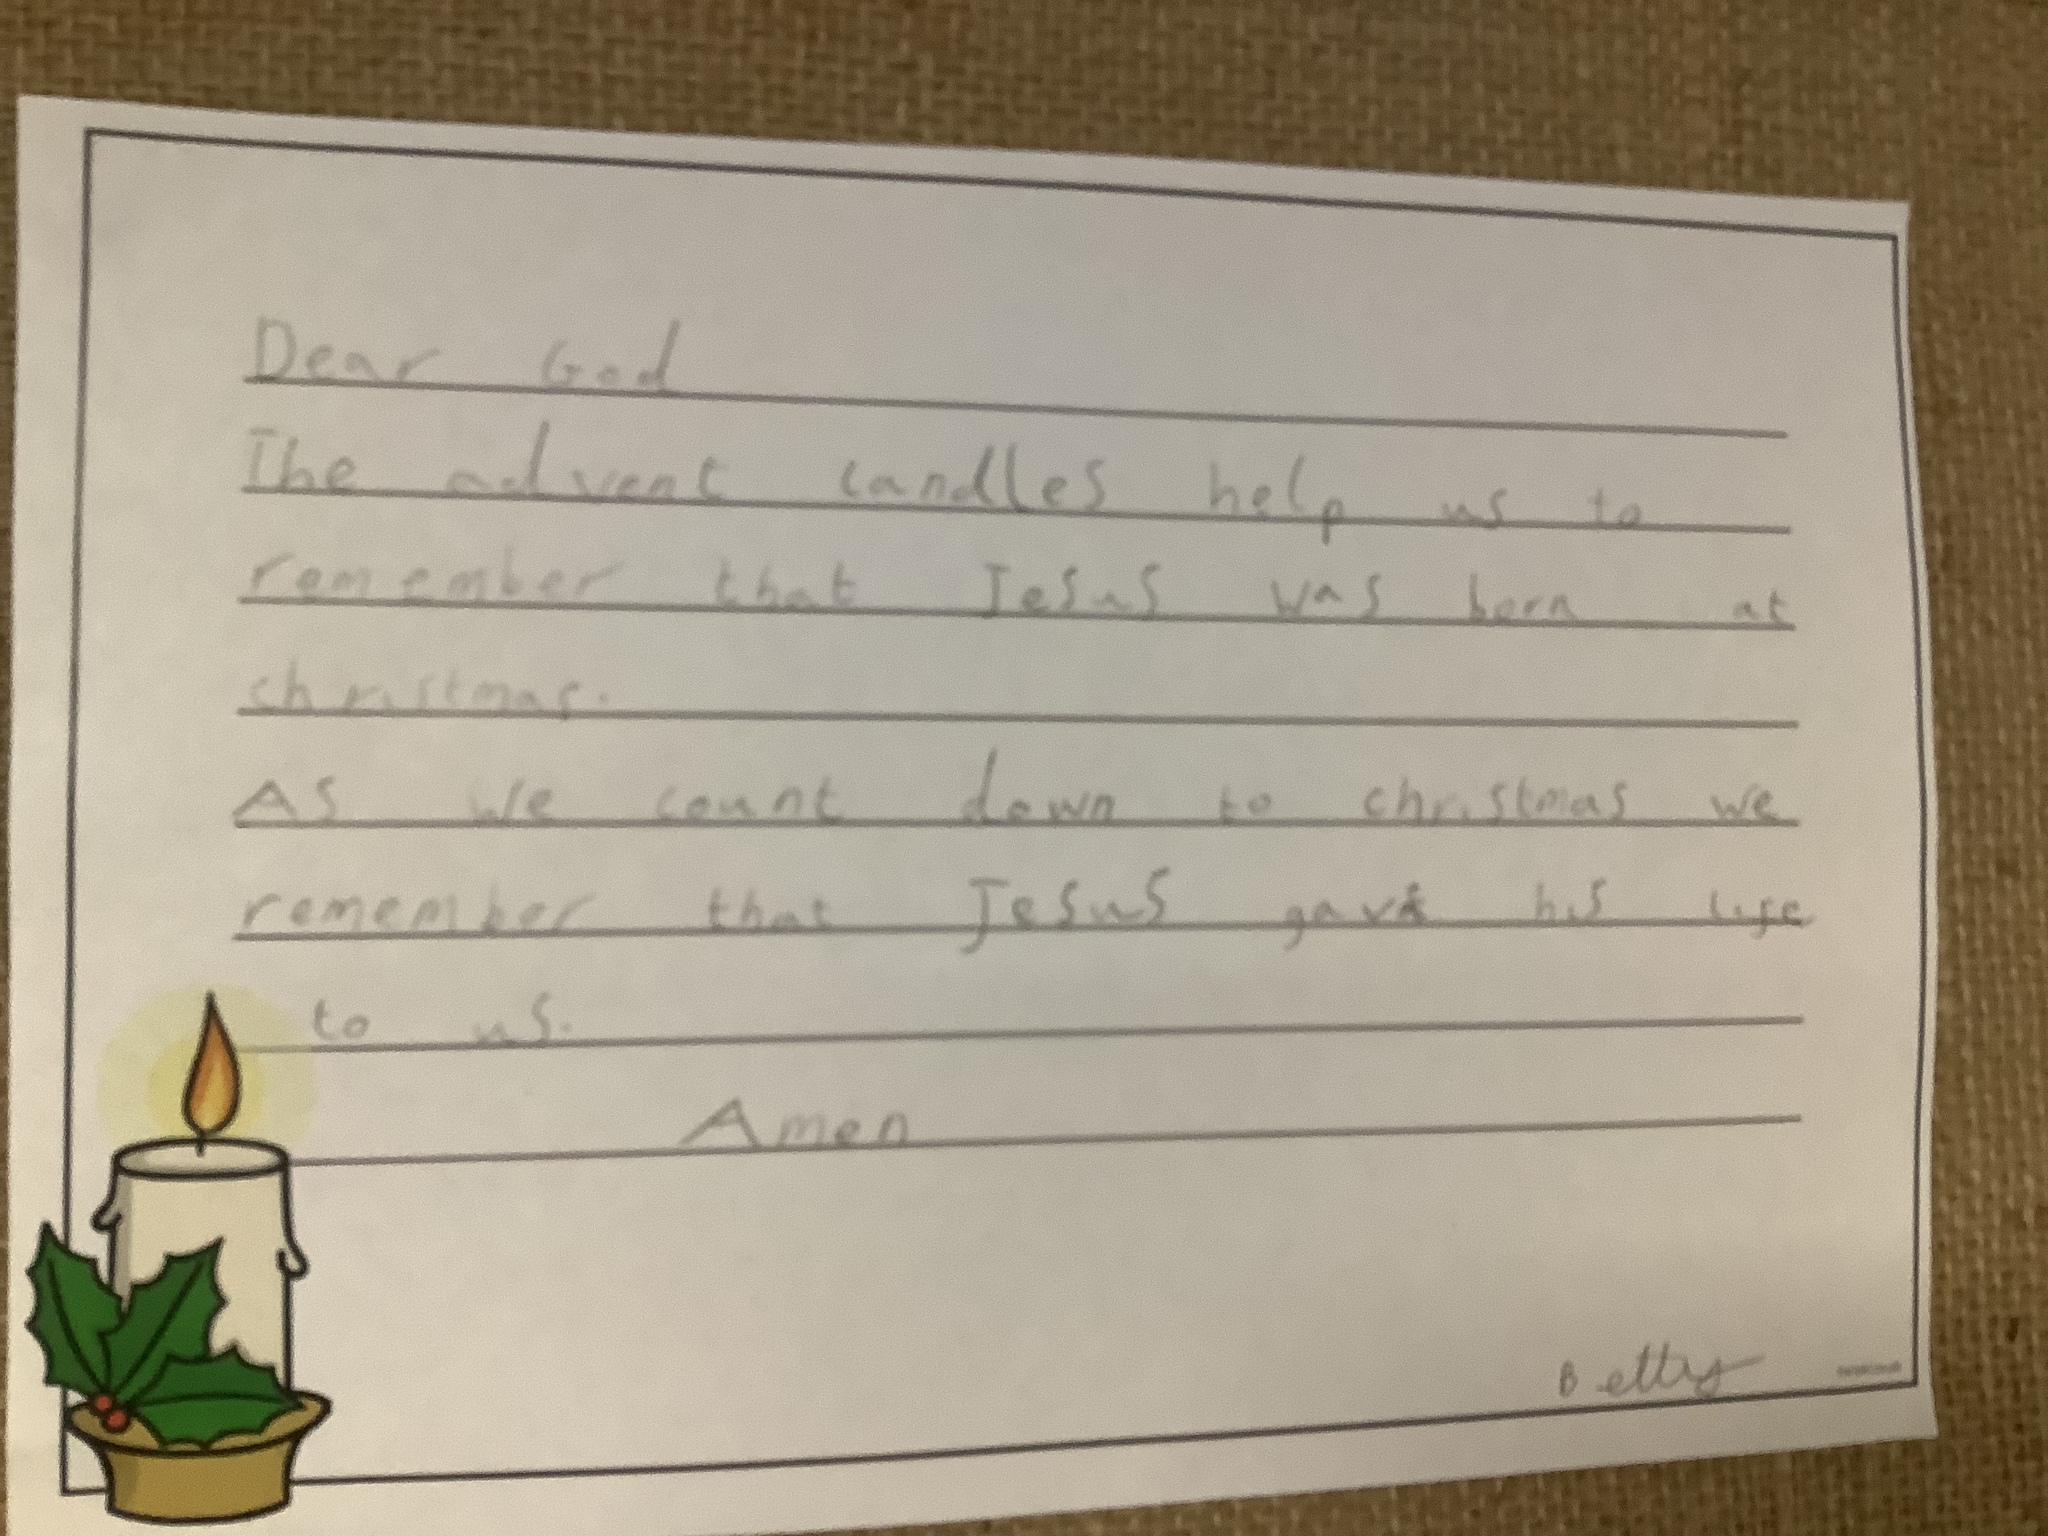 Dear God
The advent candles help us to
remember that Jesus was born at
christmas.
As we count down to christmas we
remember that Jesus gave his life
to us.
Amen
Betty